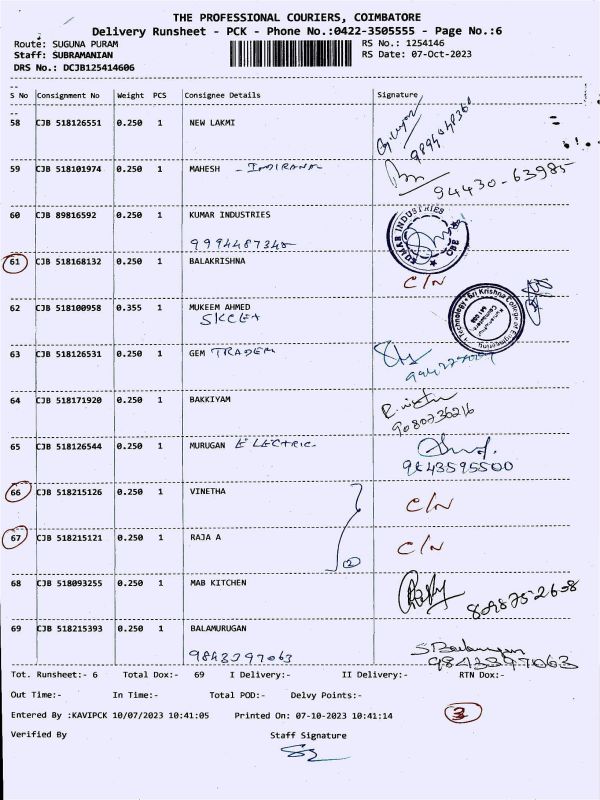 THE PROFESSIONAL COURIERS, COIMBATORE
Delivery Runsheet - PCK - Phone No.:0422-3505555 - Page No.:6
Route: SUGUNA PURAM RS No.: 1254146
Staff: SUBRAMANIAN RS Date: 07-Oct-2023
DRS No.: DCJB125414606
S No Consignment No Weight PCS Consignee Details Signature
58 CJB 518126551 0.250 1 NEW LAKMI
59 CJB 518101974 0.250 1 MAHESH
94430-63985
60 CJB 89816592 0.250 1 KUMAR INDUSTRIES
KUMAR INDUSTRIES
CBE
9994487340
61 CJB 518168132 0.250 1 BALAKRISHNA C/N
62 CJB 518100958 0.355 1 MUKEEM AHMED
Sri Krishna College of Engineering
Technology
63 CJB 518126531 0.250 1 GEM
64 CJB 518171920 0.250 1 BAKKIYAM
9080736216
65 CJB 518126544 0.250 1 MURUGAN ELECTRIC
9843595500
66 CJB 518215126 0.250 1 VINETHA C/N
67 CJB 518215121 0.250 1 RAJA A C/N
2
68 CJB 518093255 0.250 1 MAB KITCHEN
69 CJB 518215393 0.250 1 BALAMURUGAN
9843397063 9843397063
Tot. Runsheet:- 6 Total Dox:- 69 I Delivery:- II Delivery:- RTN Dox:-
Out Time:- In Time:- Total POD:- Delvy Points:-
Entered By :KAVIPCK 10/07/2023 10:41:05 Printed On: 07-10-2023 10:41:14 3
Verified By Staff Signature